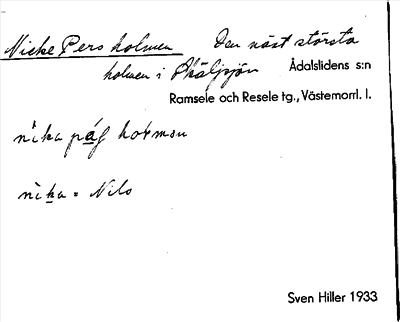 Nicke Pers holmen Den näst största
holmen i Ådalslidens s:n
Ramsele och Resele tg., Västernorrl. l.
nika holmen
nika = Nils
Sven Hiller 1933